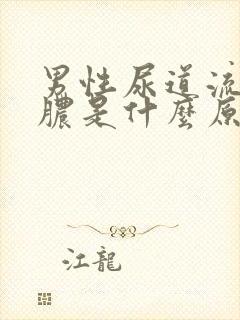 男性尿道流
膿是什麼原
江龍